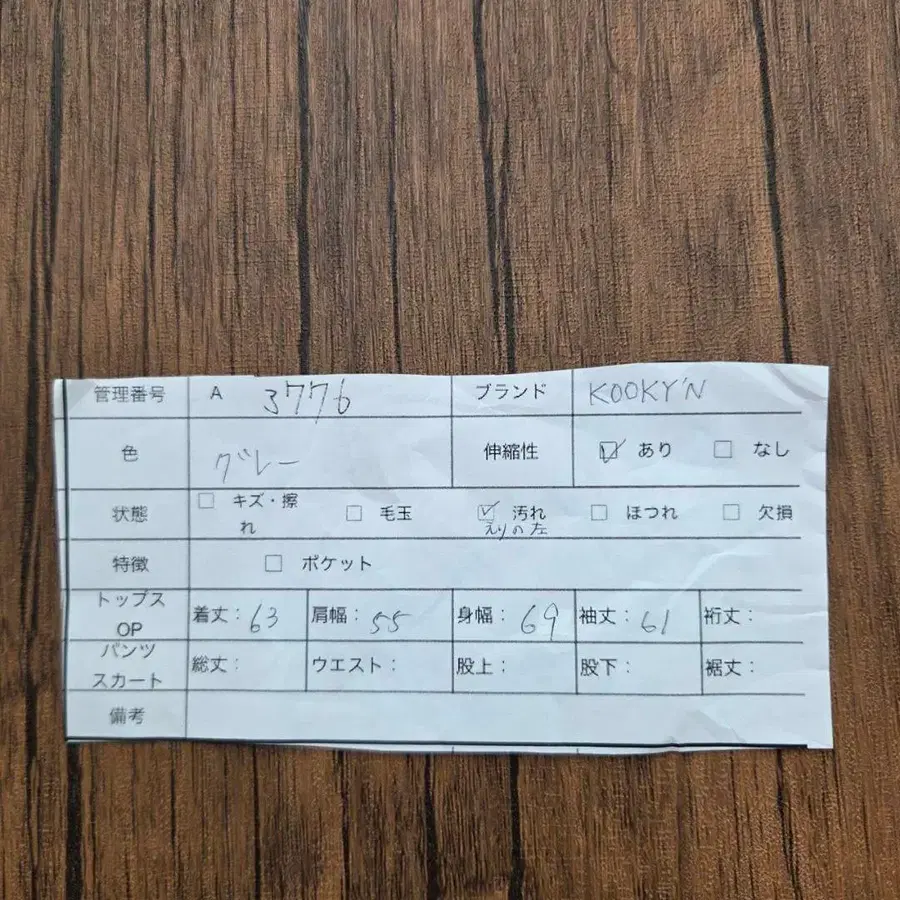 管理番号 A 3776 ブランド KOOKY'N
色 グレー 伸縮性 ☑ あり ☐ なし
状態 ☐ キズ・擦れ ☐ 毛玉 ☑ 汚れ えりの左 ☐ ほつれ ☐ 欠損
特徴 ☐ ポケット
トップス OP 着丈: 63 肩幅: 55 身幅: 69 袖丈: 61 裄丈:
パンツ スカート 総丈: ウエスト: 股上: 股下: 裾丈:
備考